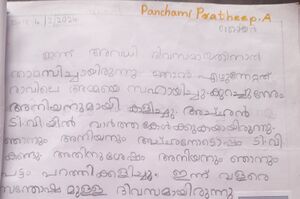 Panchami Pratheep. A
4/2/2024
ഞായർ
ഇന്ന് അവധി ദിവസമായതിനാൽ
താമസിച്ചായിരുന്നു ഞാൻ എഴുന്നേറ്റത്
രാവിലെ അമ്മയെ സഹായിച്ചു. കുറച്ചുനേരം
അനിയനുമായി കളിച്ചു. അച്ഛൻ
ടി.വിയിൽ വാർത്ത കേൾക്കുകയായിരുന്നു.
ഞാനും അനിയനും അച്ഛന്റെടൊപ്പം ടി.വി
കണ്ടു. അതിനുശേഷം അനിയനും ഞാനും
പട്ടം പറത്തിക്കളിച്ചു. ഇന്ന് വളരെ
സന്തോഷമുള്ള ദിവസമായിരുന്നു